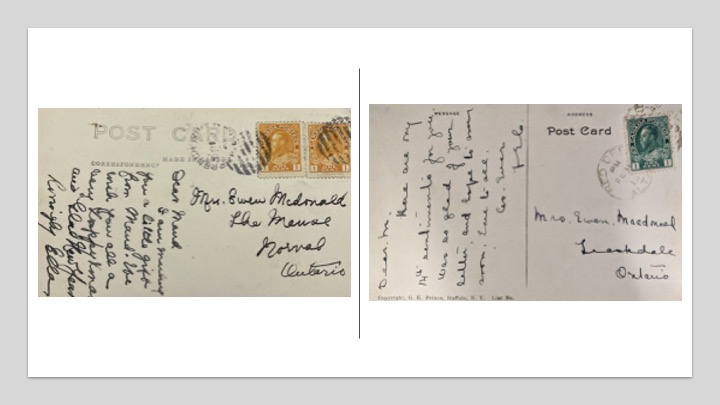 POST CARD
CORRESPONDENCE
Dear Maud
I am mailing
you a little gift
from Maud. We
wish you all a
very Happy Xmas
and Glad New Year
Lovingly Ella
Mrs. Ewen Mcdonald
The Manse
Norval
Ontario
MESSAGE
ADDRESS
Post Card
Dear M.
Here are my
sentiments for you.
was so glad of your
letter, and hope to
soon. Love to all.
As Ever
Mrs. Ewen. Macdonald
Leaskdale
Ontario
Copyright, G. K. Prince, Buffalo, N. Y.